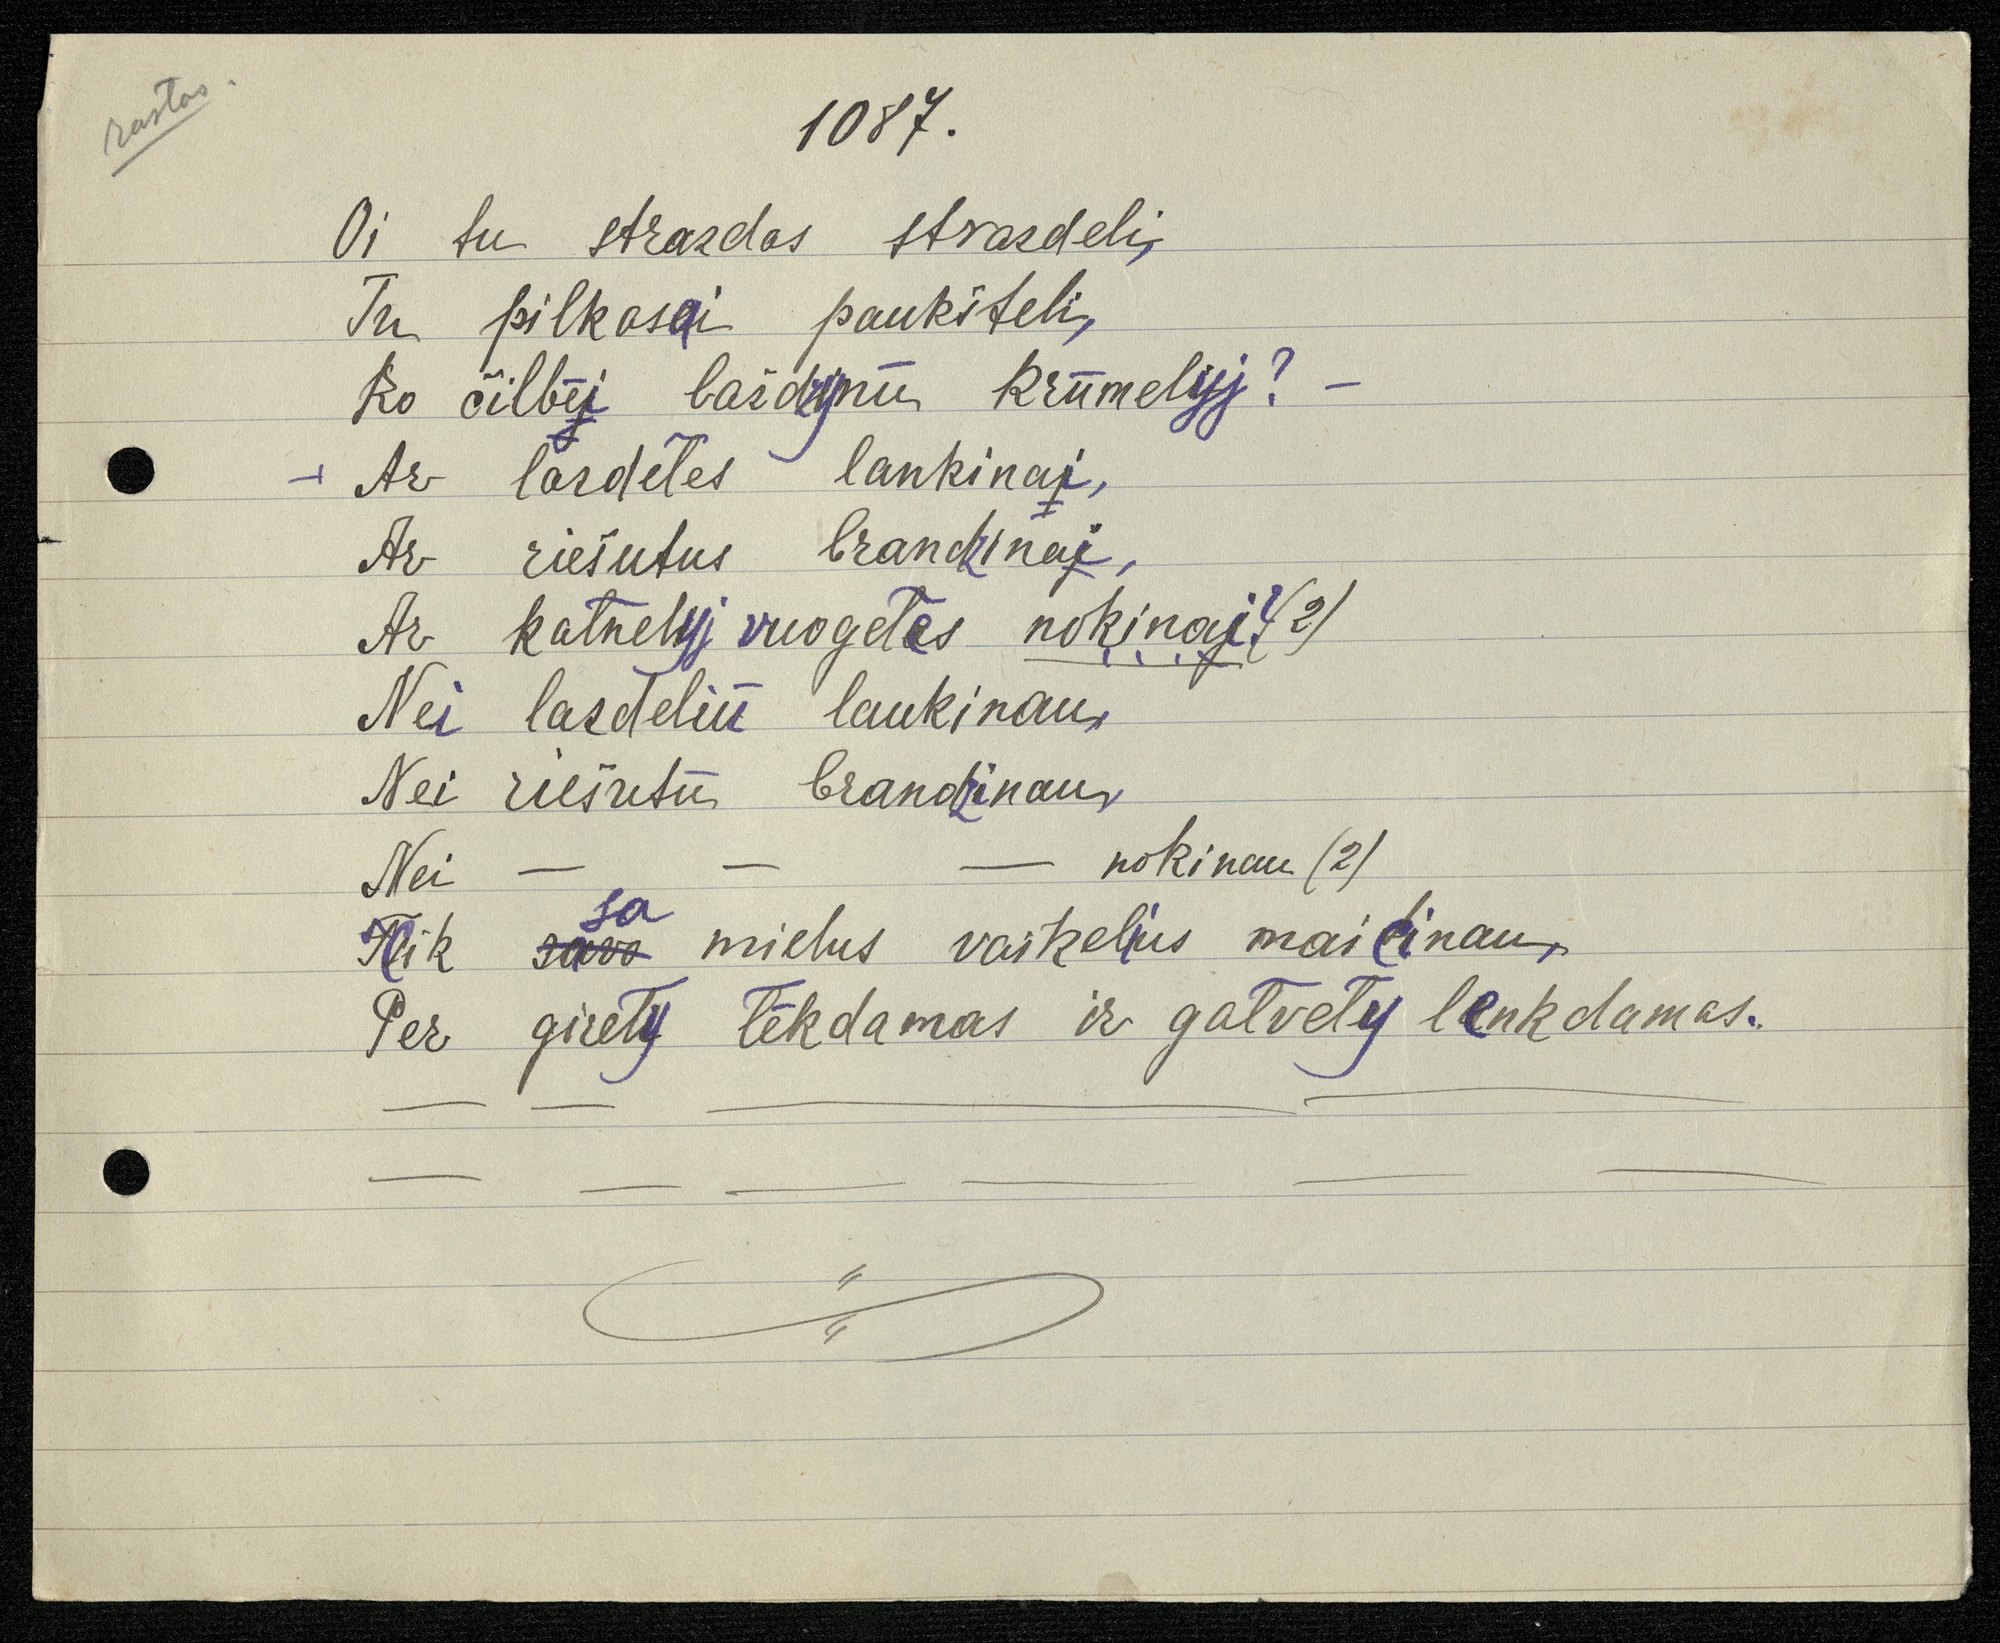 rastas.
1087.
Oi tu strazdas strazdeli,
Tu pilkasai paukšteli,
Ko čilbėj lazdzynū krūmelyj? –
Ar lazdeles lankinaj,
Ar riešutus brandzinaj,
Ar kalnelyj vuogeles nokinaj? (2)
Nei lazdeliū laukinau,
Nei riešutū brandzinau,
Nei — — — nokinau (2)
Cik sa mielus vaikelius maicinau,
Per girely lėkdamas ir galvely lenkdamas.